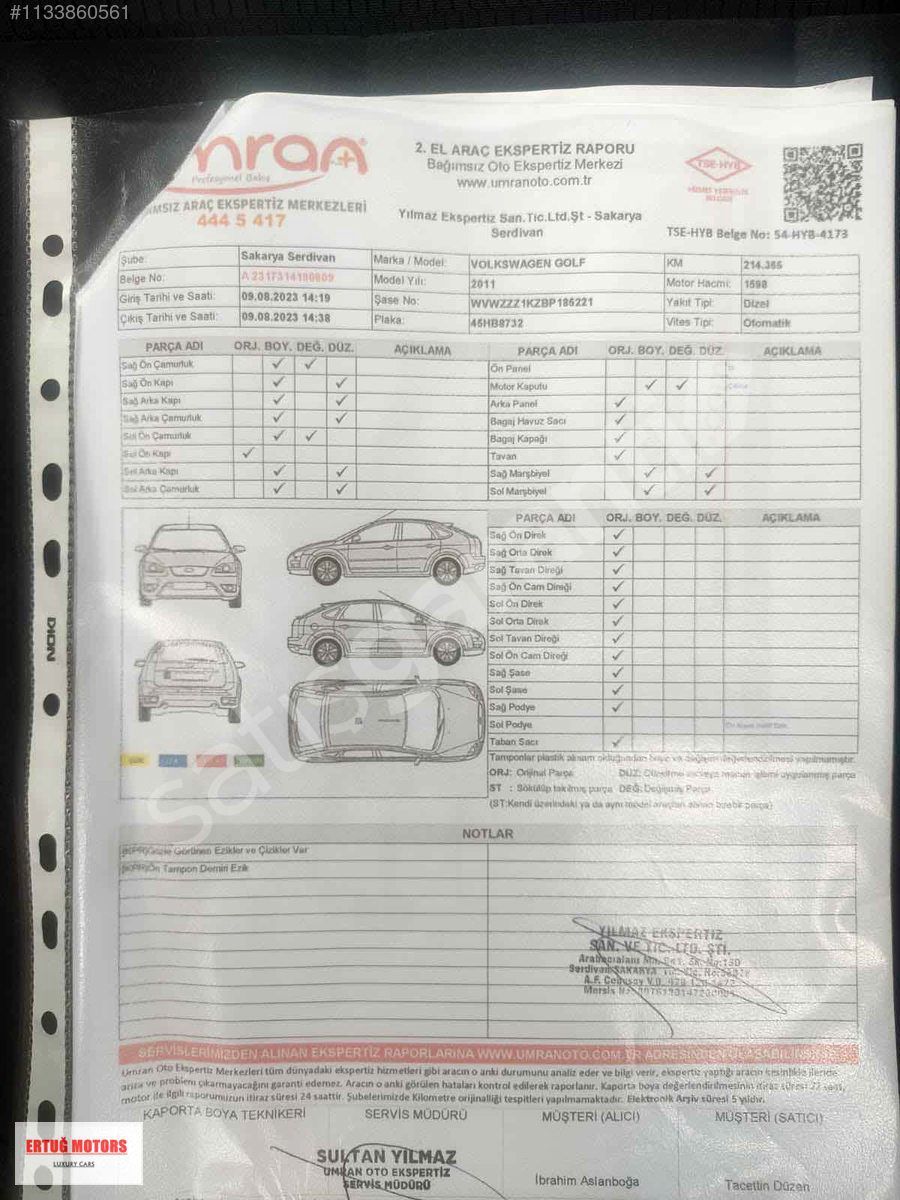 #1133860561
ımran
Profesyonel Bakış
2. EL ARAÇ EKSPERTİZ RAPORU
Bağımsız Oto Ekspertiz Merkezi
www.umranoto.com.tr
TSE-HYB
HİZMET YETERLİLİK BELGESİ
IMSIZ ARAÇ EKSPERTİZ MERKEZLERİ
444 5 417
Yılmaz Ekspertiz San.Tic.Ltd.Şt - Sakarya
Serdivan
TSE-HYB Belge No: 54-HYB-4173
Şube: Sakarya Serdivan Marka / Model: VOLKSWAGEN GOLF KM 214.365
Belge No: Model Yılı: 2011 Motor Hacmi: 1598
Giriş Tarihi ve Saati: 09.08.2023 14:19 Şase No: WVWZZZ1KZBP186221 Yakıt Tipi: Dizel
Çıkış Tarihi ve Saati: 09.08.2023 14:38 Plaka: 45HB8732 Vites Tipi: Otomatik
PARÇA ADI ORJ. BOY. DEĞ. DÜZ. AÇIKLAMA PARÇA ADI ORJ. BOY. DEĞ. DÜZ. AÇIKLAMA
Sağ Ön Çamurluk ✓ ✓ Ön Panel
Sağ Ön Kapı ✓ ✓ Motor Kaputu ✓ ✓
Sağ Arka Kapı ✓ ✓ Arka Panel ✓
Sağ Arka Çamurluk ✓ ✓ Bagaj Havuz Sacı ✓
Sol Ön Çamurluk ✓ ✓ Bagaj Kapağı ✓
Sol Ön Kapı ✓ Tavan ✓
Sol Arka Kapı ✓ ✓ Sağ Marşbiyel ✓ ✓
Sol Arka Çamurluk ✓ ✓ Sol Marşbiyel ✓ ✓
PARÇA ADI ORJ. BOY. DEĞ. DÜZ. AÇIKLAMA
Sağ Ön Direk ✓
Sağ Orta Direk ✓
Sağ Tavan Direği ✓
Sağ Ön Cam Direği ✓
Sol Ön Direk ✓
Sol Orta Direk ✓
Sol Tavan Direği ✓
Sol Ön Cam Direği ✓
Sağ Şase ✓
Sol Şase ✓
Sağ Podye ✓
Sol Podye
Taban Sacı ✓
Tamponlar plastik aksam olduğundan boya ve değişim değerlendirilmesi yapılmamıştır.
ORJ: Orijinal Parça DÜZ: Düzeltme ve/veya macun işlemi uygulanmış parça
ST : Sökülüp takılmış parça DEĞ: Değişmiş Parça
(ST:Kendi üzerindeki ya da aynı model araçtan alınan birebir parça)
NOTLAR
Gözle Görünen Ezikler ve Çizikler Var
Ön Tampon Demiri Ezik
YILMAZ EKSPERTİZ
SAN. VE TİC. LTD. ŞTİ.
DION
SERVİSLERİMİZDEN ALINAN EKSPERTİZ RAPORLARINA WWW.UMRANOTO.COM.TR ADRESİNDEN ULAŞABİLİRSİNİZ
Umran Oto Ekspertiz Merkezleri tüm dünyadaki ekspertiz hizmetleri gibi aracın o anki durumunu analiz eder ve bilgi verir, ekspertiz yaptığı aracın kesinlikle ileride
arıza ve problem çıkarmayacağını garanti edemez. Aracın o anki görülen hataları kontrol edilerek raporlanır. Kaporta boya değerlendirilmesinin itiraz süresi 72 saat,
motor ile ilgili raporumuzun itiraz süresi 24 saattir. Şubelerimizde Kilometre orijinalliği tespitleri yapılmamaktadır. Elektronik Arşiv süresi 5 yıldır.
KAPORTA BOYA TEKNİKERİ SERVİS MÜDÜRÜ MÜŞTERİ (ALICI) MÜŞTERİ (SATICI)
ERTUĞ MOTORS
LUXURY CARS
SULTAN YILMAZ
UMRAN OTO EKSPERTİZ
SERVİS MÜDÜRÜ
İbrahim Aslanboğa
Tacettin Düzen